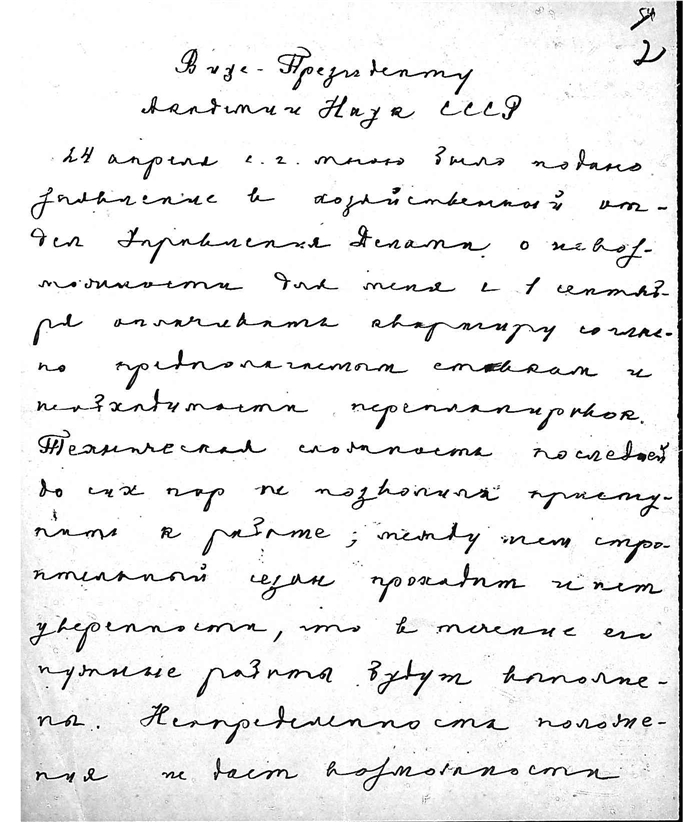 54
2
Вице-Президенту
Академии Наук СССР
24 апреля с.г. мною было подано
заявление в хозяйственный от-
дел Управления Делами о невоз-
можности для меня с 1 сентяб-
ря оплачивать квартиру соглас-
но предполагаемым ставкам и
необходимости перепланировок.
Техническая сложность последней
до сих пор не позволила присту-
пить к работе; между тем стро-
ительный сезон проходит и нет
уверенности, что в течение его
нужные работы будут выполне-
ны. Неопределенность положе-
ния не дает возможности